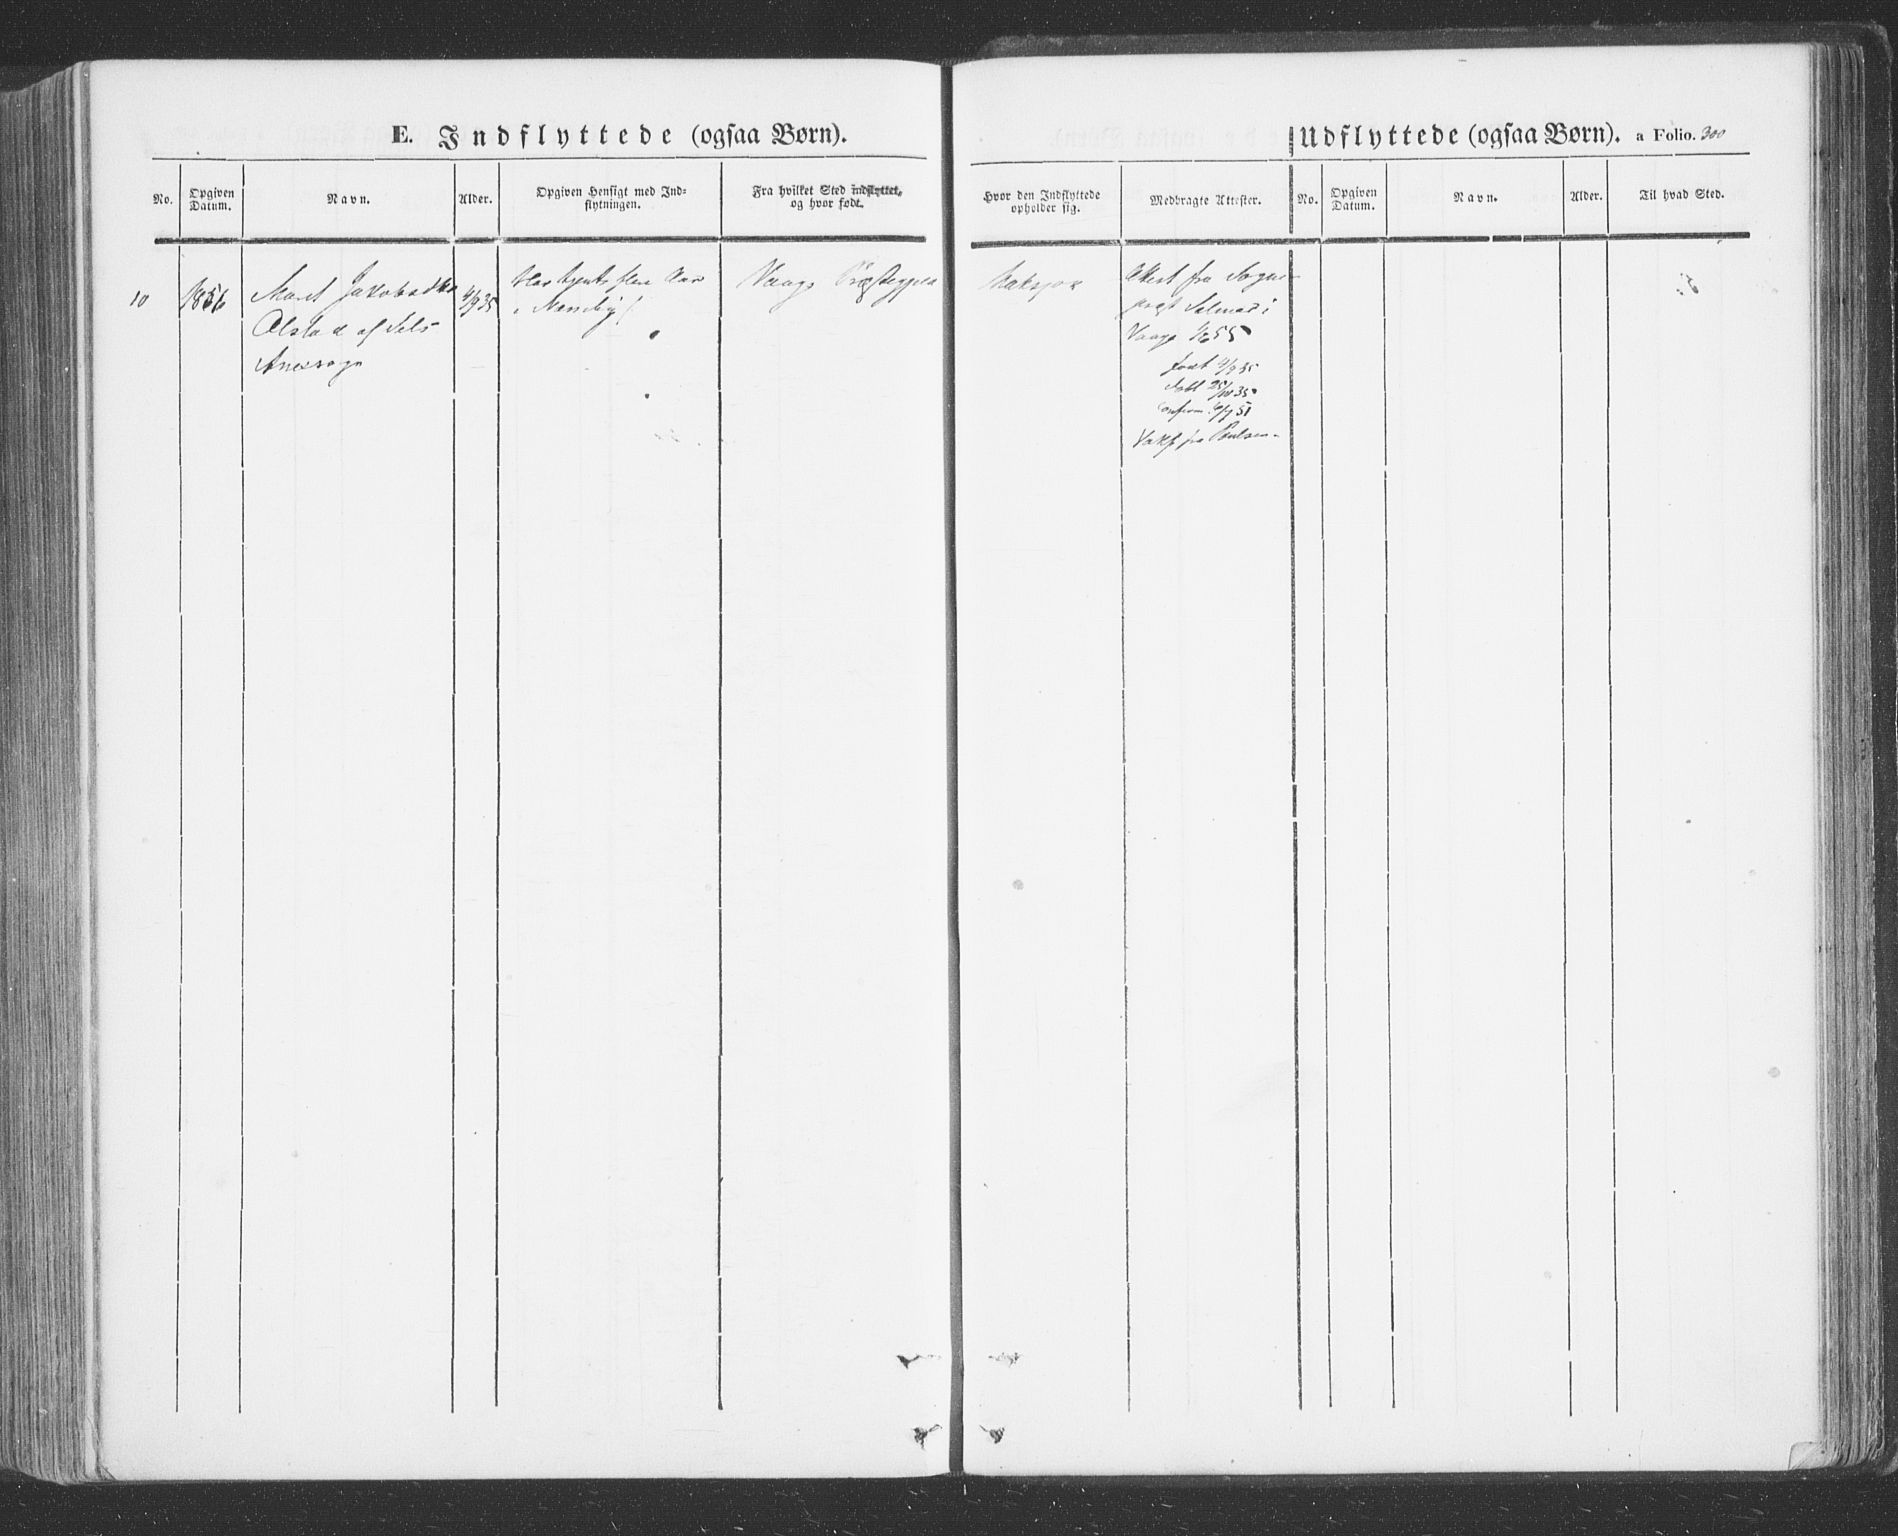 E. Indflyttede (ogsaa Børn).
No.
Opgiven
Datum.
Navn.
Alder.
Opgiven Hensigt med Ind-
flytningen.
Fra hvilket Sted indflyttet,
og hvor født.
10
1856
Marit Jakobsdtr
Olstad af Sels
Anexsogn
4/9 35
flere Aar
Vaage Præstegjeld
Udflyttede (ogsaa Børn). a Folio. 300
Hvor den Indflyttede
opholder sig.
Medbragte Attester.
No.
Opgiven
Datum.
Navn.
Alder.
Til hvad Sted.
Attest fra Sogne-
præst i
Vaage 55
født 4/9 35
døbt 25/10 35
confirm. 51
fra Poulsen